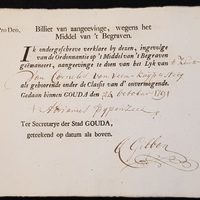 Pro Deo.
Billiet van aangeevinge, wegens het
Middel van 't Begraven.
IK ondergeschreve verklare by dezen, ingevolge
van de Ordonnantie op 't Middel van 't Begraven
geëmaneert, aangeevinge te doen van het Lyk van
Jan Cornelis van
als gehoorende onder de Classis van d' onvermogende.
Gedaan binnen GOUDA den 24 October 1791
Adrianus
Ter Secretarye der Stad GOUDA,
geteekend op datum als boven.